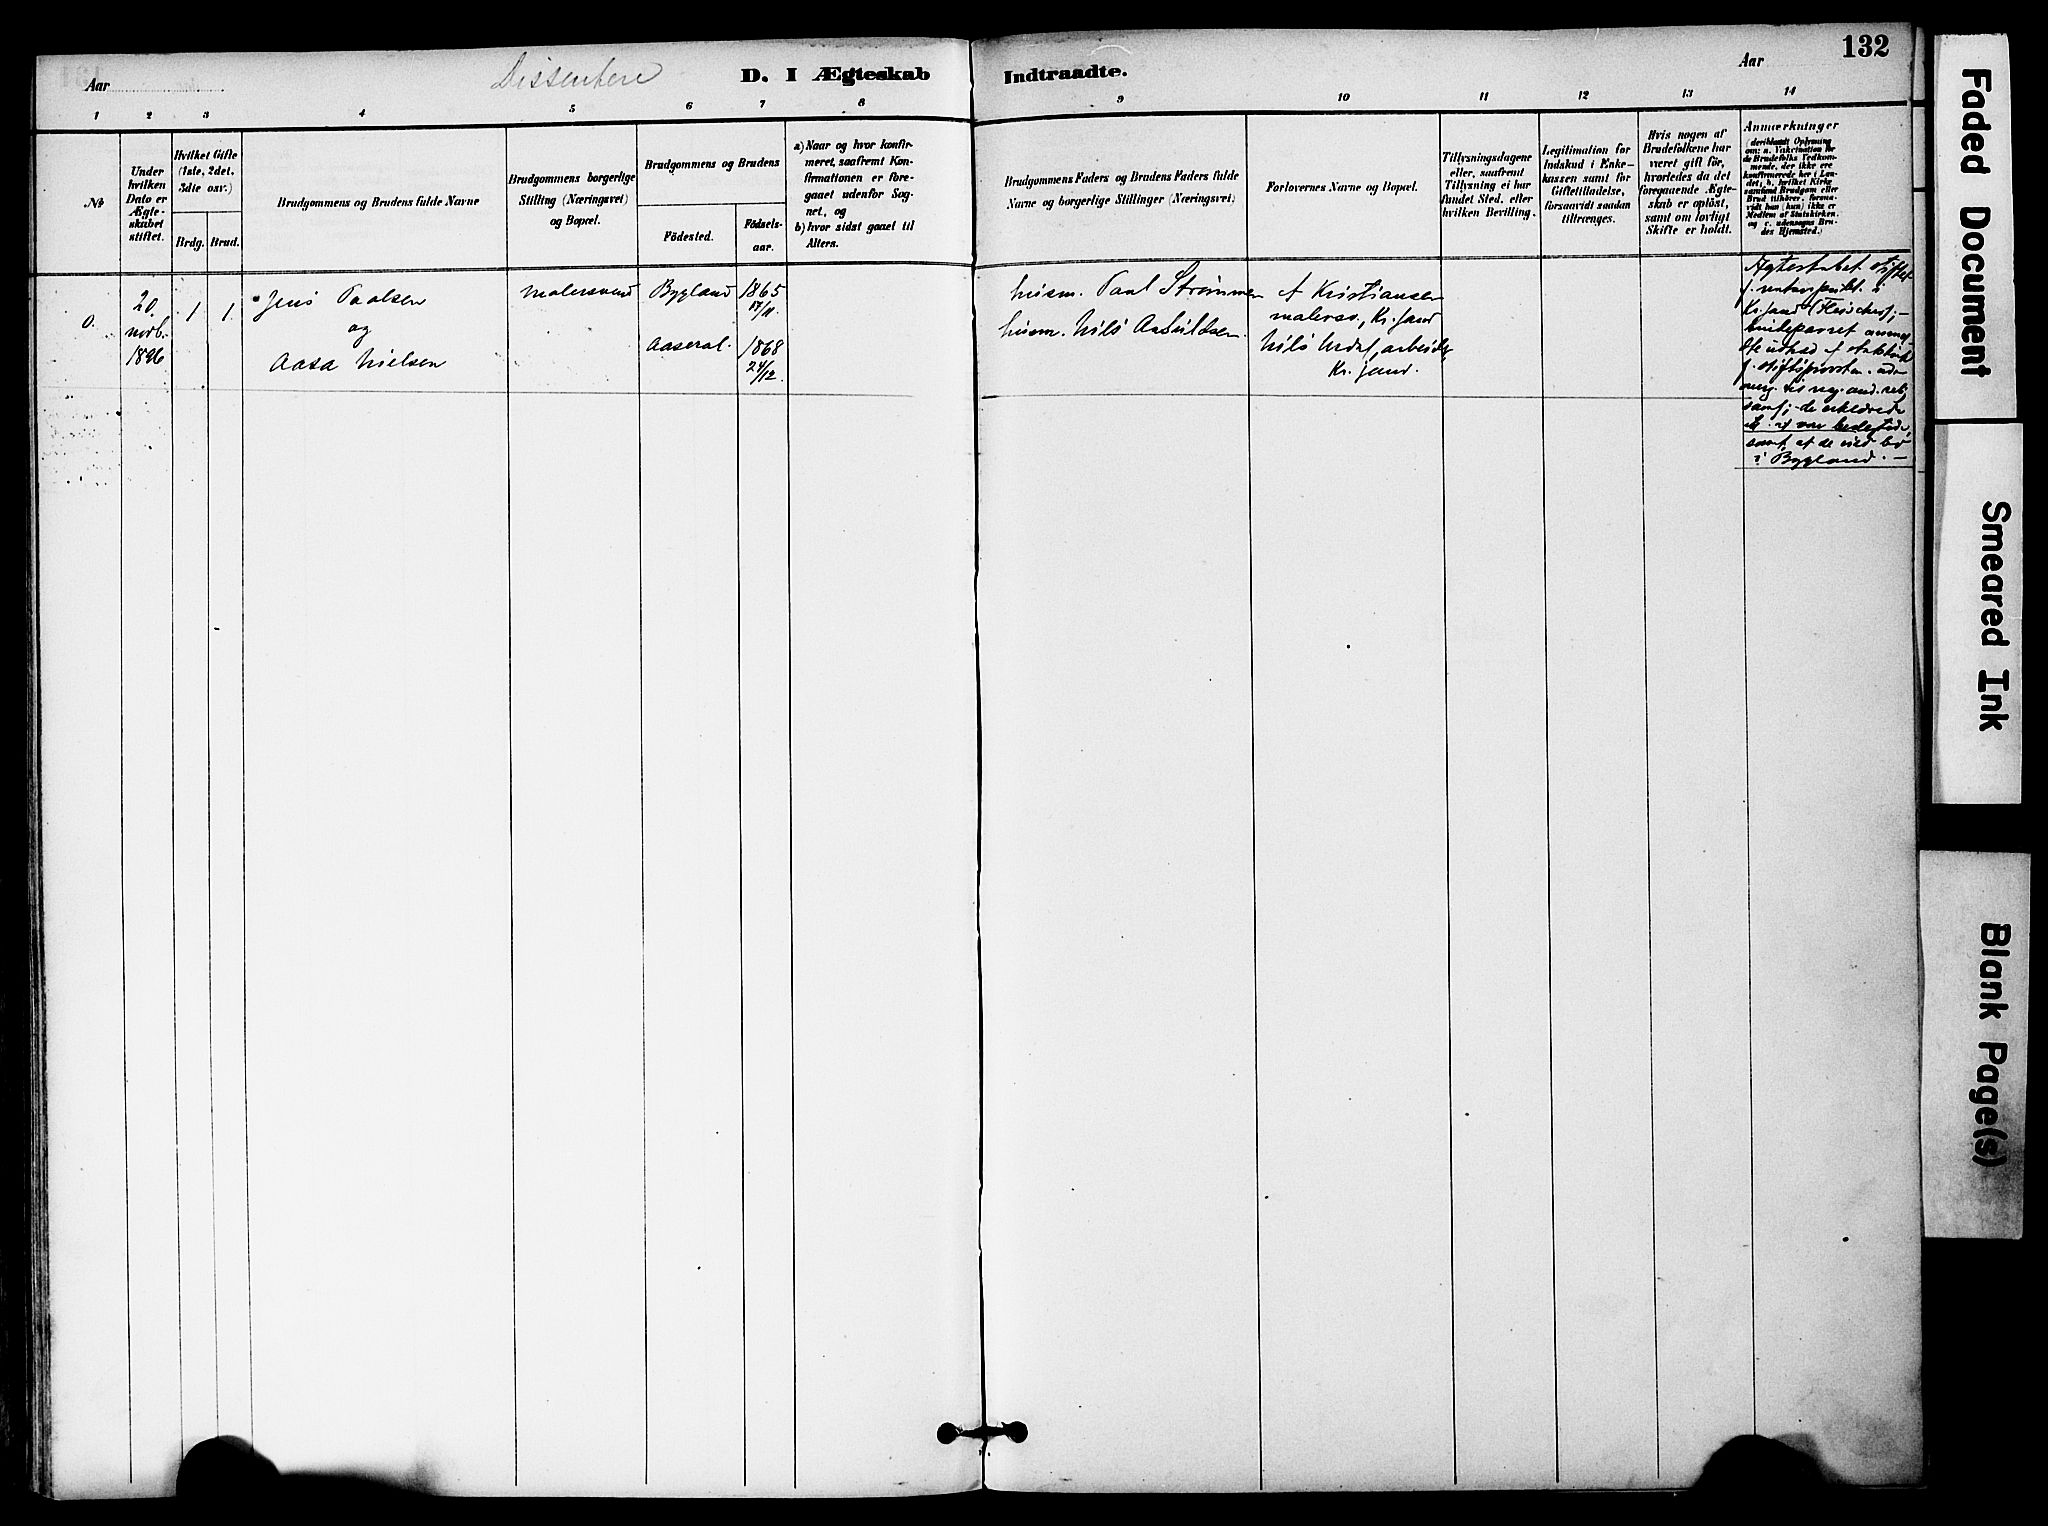 Dissentere
D. I Ægteskab
Indtraadte.
Aar
132
Aar
1 2 3 4 5 6 7 8
9 10 11 12 13 14
№
Under hvilken Dato er Ægteskabet stiftet.
Hvilket Gifte (1ste, 2det, 3die osv.)
Brdg. Brud.
Brudgommens og Brudens fulde Navne
Brudgommens borgerlige Stilling (Næringsvei) og Bopæl.
Brudgommens og Brudens
Födested.
Födselsaar.
a) Naar og hvor konfirmeret, saafremt Konfirmationen er foregaaet udenfor Sognet, og
b) hvor sidst gaaet til Alters.
Brudgommens Faders og Brudens Faders fulde Navne og borgerlige Stillinger (Næringsvei)
Forlovernes Navne og Bopæl.
Tillysningsdagene eller, saafremt Tillysning ei har fundet Sted, efter hvilken Bevilling.
Legitimation for Indskud i Enkekassen samt for Giftetilladelse, forsaavidt saadan tiltrænges.
Hvis nogen af Brudefolkene har været gift för, hvorledes da det foregaaende Ægteskab er oplöst, samt om lovligt Skifte er holdt.
Anmærkninger
(deriblandt Oplysning om: a. Vakcination for de Brudefolks Vedkommende, der ikke ere konfirmerede her i Landet; b. hvilket Kirkesamfund Brudgom eller Brud tilhörer, forsaavidt han (hun) ikke er Medlem af Statskirken, og c. udensogns Brudes Hjemsted.)
0.
20
novb.
1896
1 1
Jens Paalsen
og
Aasa Nielsen
malersvend
Bygland
1865
17/11
Aaseral.
1868
24/12.
husm. Paal Strømmen
husm. Nils Aasuldsen.
A Kristiansen
malersv., Kr.sand
Nils Urdal, arbeider
Kr.sand.
Ægteskabet stiftet
f. notarpubl. i
Kr.sand (Fleischer);
samt at de vilde bo
i Bygland. —
Faded Document
Smeared Ink
Blank Page(s)